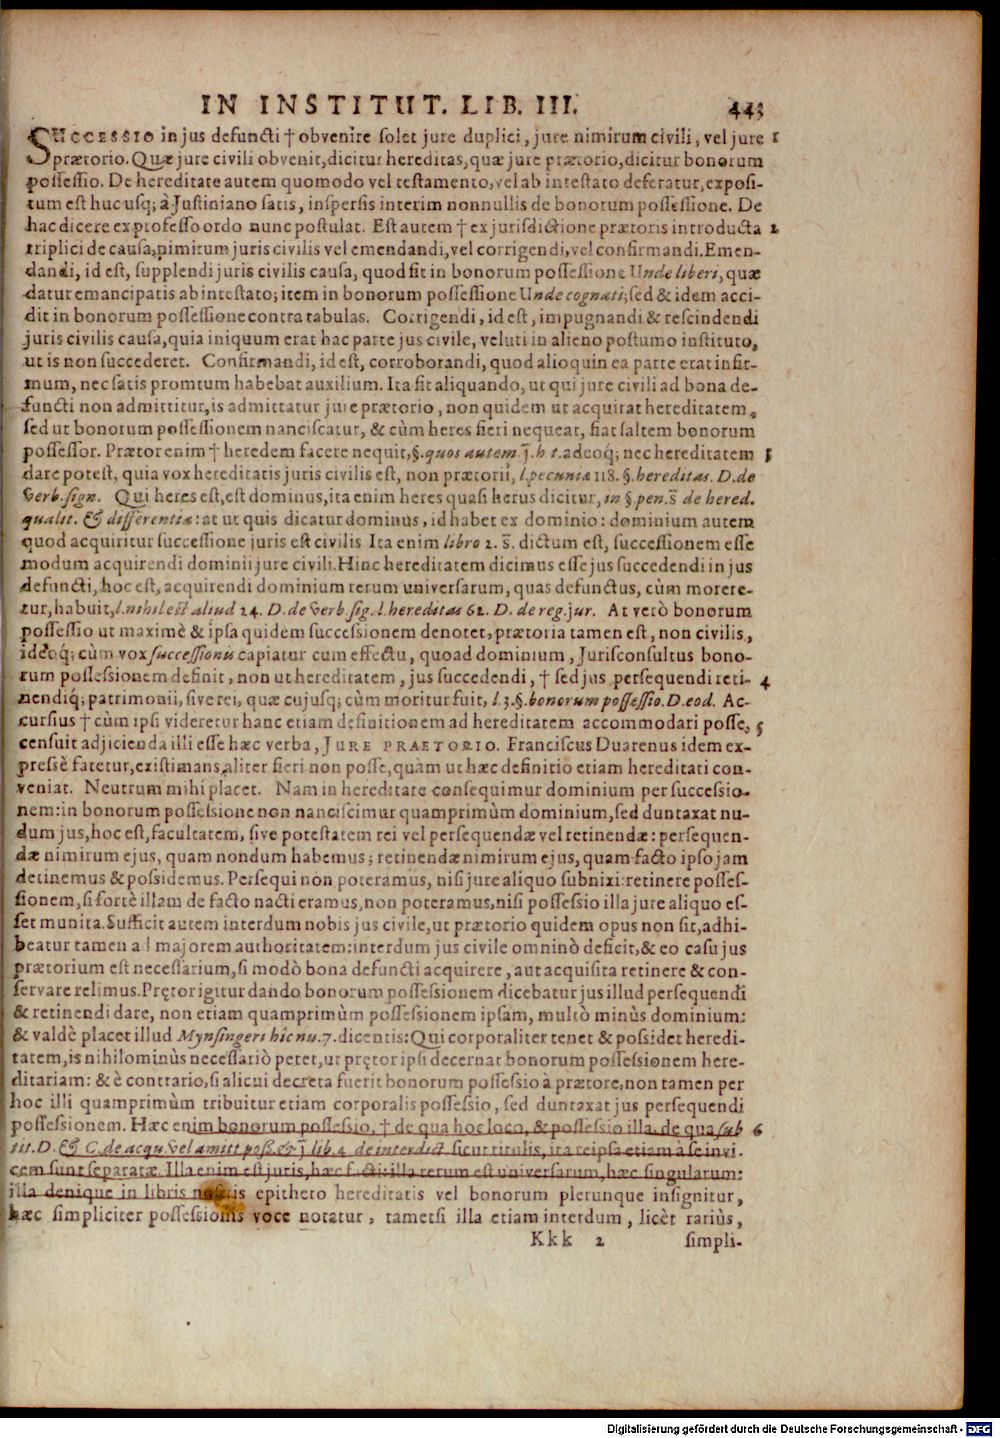 IN INSTITUT. LIB. III. 443
SUCCESSIO in jus defuncti † obvenire solet jure duplici, jure nimirum civili, vel jure 1
prætorio. Quæ jure civili obvenit, dicitur hereditas, quæ jure prætorio, dicitur bonorum
possessio. De hereditate autem quomodo vel testamento, vel ab intestato deferatur, exposi-
tum est huc usq; à Justiniano satis, inspersis interim nonnullis de bonorum possessione. De
hac dicere ex professo ordo nunc postulat. Est autem † ex jurisdictione prætoris introducta 2
triplici de causa, nimirum juris civilis vel emendandi, vel corrigendi, vel confirmandi. Emen-
dandi, id est, supplendi juris civilis causa, quod fit in bonorum possessione Unde liberi, quæ
datur emancipatis ab intestato; item in bonorum possessione Unde cognati; sed & idem acci-
dit in bonorum possessione contra tabulas. Corrigendi, id est, impugnandi & rescindendi
juris civilis causa, quia iniquum erat hac parte jus civile, veluti in alieno postumo instituto,
ut is non succederet. Confirmandi, id est, corroborandi, quod alioquin ea parte erat infir-
mum, nec satis promtum habebat auxilium. Ita fit aliquando, ut qui jure civili ad bona de-
functi non admittitur, is admittatur jure prætorio, non quidem ut acquirat hereditatem,
sed ut bonorum possessionem nanciscatur, & cùm heres fieri nequeat, fiat saltem bonorum
possessor. Prætor enim † heredem facere nequit, §. quos autem. j. h t. adeoq; nec hereditatem 3
dare potest, quia vox hereditatis juris civilis est, non prætorii, l. pecunia 118. §. hereditas. D. de
verb. sign. Qui heres est, est dominus, ita enim heres quasi herus dicitur, in §. pen. s̄. de hered.
qualit. & differentia: at ut quis dicatur dominus, id habet ex dominio: dominium autem
quod acquiritur successione juris est civilis Ita enim libro 2. s̄. dictum est, successionem esse
modum acquirendi dominii jure civili. Hinc hereditatem dicimus esse jus succedendi in jus
defuncti, hoc est, acquirendi dominium rerum universarum, quas defunctus, cùm morere-
tur, habuit, l. nihil est aliud 24. D. de verb. sig. l. hereditas 62. D. de reg. jur. At verò bonorum
possessio ut maximè & ipsa quidem successionem denotet, prætoria tamen est, non civilis,
ideoq; cùm vox successionis capiatur cum effectu, quoad dominium, Jurisconsultus bono-
rum possessionem definit, non ut hereditatem, jus succedendi, † sed jus persequendi reti- 4
nendiq; patrimonii, sive rei, quæ cujusq; cùm moritur fuit, l. 3. §. bonorum possessio. D. eod. Ac-
cursius † cùm ipsi videretur hanc etiam definitionem ad hereditatem accommodari posse, 5
censuit adjicienda illi esse hæc verba, JURE PRAETORIO. Franciscus Duarenus idem ex-
pressè fatetur, existimans, aliter fieri non posse, quàm ut hæc definitio etiam hereditati con-
veniat. Neutrum mihi placet. Nam in hereditate consequimur dominium per successio-
nem: in bonorum possessione non nanciscimur quamprimùm dominium, sed duntaxat nu-
dum jus, hoc est, facultatem, sive potestatem rei vel persequendæ vel retinendæ: persequen-
dæ nimirum ejus, quam nondum habemus; retinendæ nimirum ejus, quam facto ipso jam
detinemus & possidemus. Persequi non poteramus, nisi jure aliquo subnixi: retinere posses-
sionem, si fortè illam de facto nacti eramus, non poteramus, nisi possessio illa jure aliquo es-
set munita. Sufficit autem interdum nobis jus civile, ut prætorio quidem opus non sit, adhi-
beatur tamen ad majorem authoritatem: interdum jus civile omninò deficit, & eo casu jus
prætorium est necessarium, si modò bona defuncti acquirere, aut acquisita retinere & con-
servare velimus. Prętor igitur dando bonorum possessionem dicebatur jus illud persequendi
& retinendi dare, non etiam quamprimùm possessionem ipsam, multò minùs dominium:
& valdè placet illud Mynsingeri hic nu. 7. dicentis: Qui corporaliter tenet & possidet heredi-
tatem, is nihilominùs necessariò petet, ut prętor ipsi decernat bonorum possessionem here-
ditariam: & è contrario, si alicui decreta fuerit bonorum possessio à prætore, non tamen per
hoc illi quamprimùm tribuitur etiam corporalis possessio, sed duntaxat jus persequendi
possessionem. Hæc enim bonorum possessio, † de qua hoc loco, & possessio illa, de qua sub 6
tit. D. & C. de acqu. vel amitt. poss. & j. lib. 4. de interdict. sicut titulis, ita reipsa etiam à se invi-
cem sunt separatæ. Illa enim est juris, hæc facti: illa rerum est universarum, hæc singularum:
illa denique in libris nostris epitheto hereditatis vel bonorum plerunque insignitur,
hæc simpliciter possessionis voce notatur, tametsi illa etiam interdum, licèt rariùs,
Kkk 2 simpli-
Digitalisierung gefördert durch die Deutsche Forschungsgemeinschaft - DFG